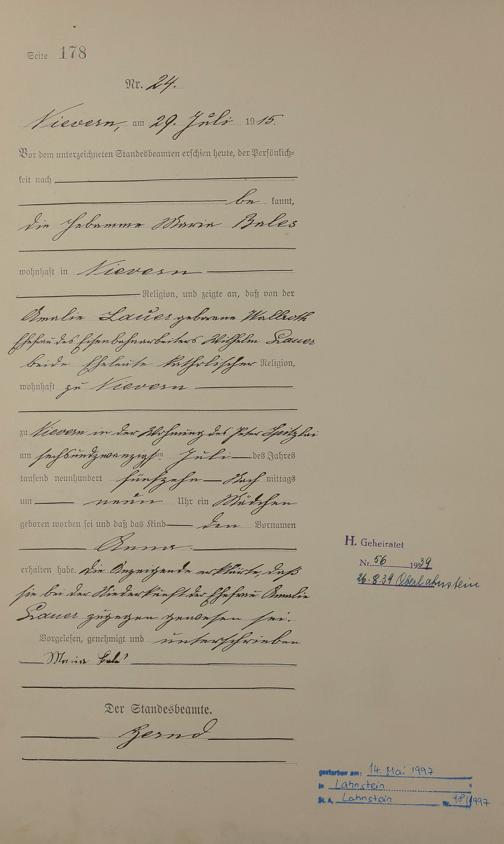 Seite 178
Nr. 24.
Nievern, am 29. Juli 1915.
Vor dem unterzeichneten Standesbeamten erschien heute, der Persönlich-
keit nach
be kannt,
die Hebamme Maria Bales
wohnhaft in Nievern
Religion, und zeigte an, daß von der
Amalie Lauer geborene Wallroth
Ehefrau des Eisenbahnarbeiters Wilhelm Lauer
beide Eheleute katholischer Religion,
wohnhaft zu Nievern
zu Nievern in der Wohnung des Peter
am sechsundzwanzigsten Juli des Jahres
tausend neunhundert fünfzehn Nach mittags
um neun Uhr ein Mädchen
geboren worden sei und daß das Kind den Vornamen
Anna
erhalten habe. Die Anzeigende erklärte, daß
sie bei der Niederkunft der Ehefrau Amalie
Lauer zugegen gewesen sei.
Vorgelesen, genehmigt und unterschrieben
Maria Bales
Der Standesbeamte.
H. Geheiratet
Nr. 56 1939
26.8.39 Oberlahnstein
gestorben am: 14. Mai 1997
in Lahnstein
St. A. Lahnstein Nr. /1997